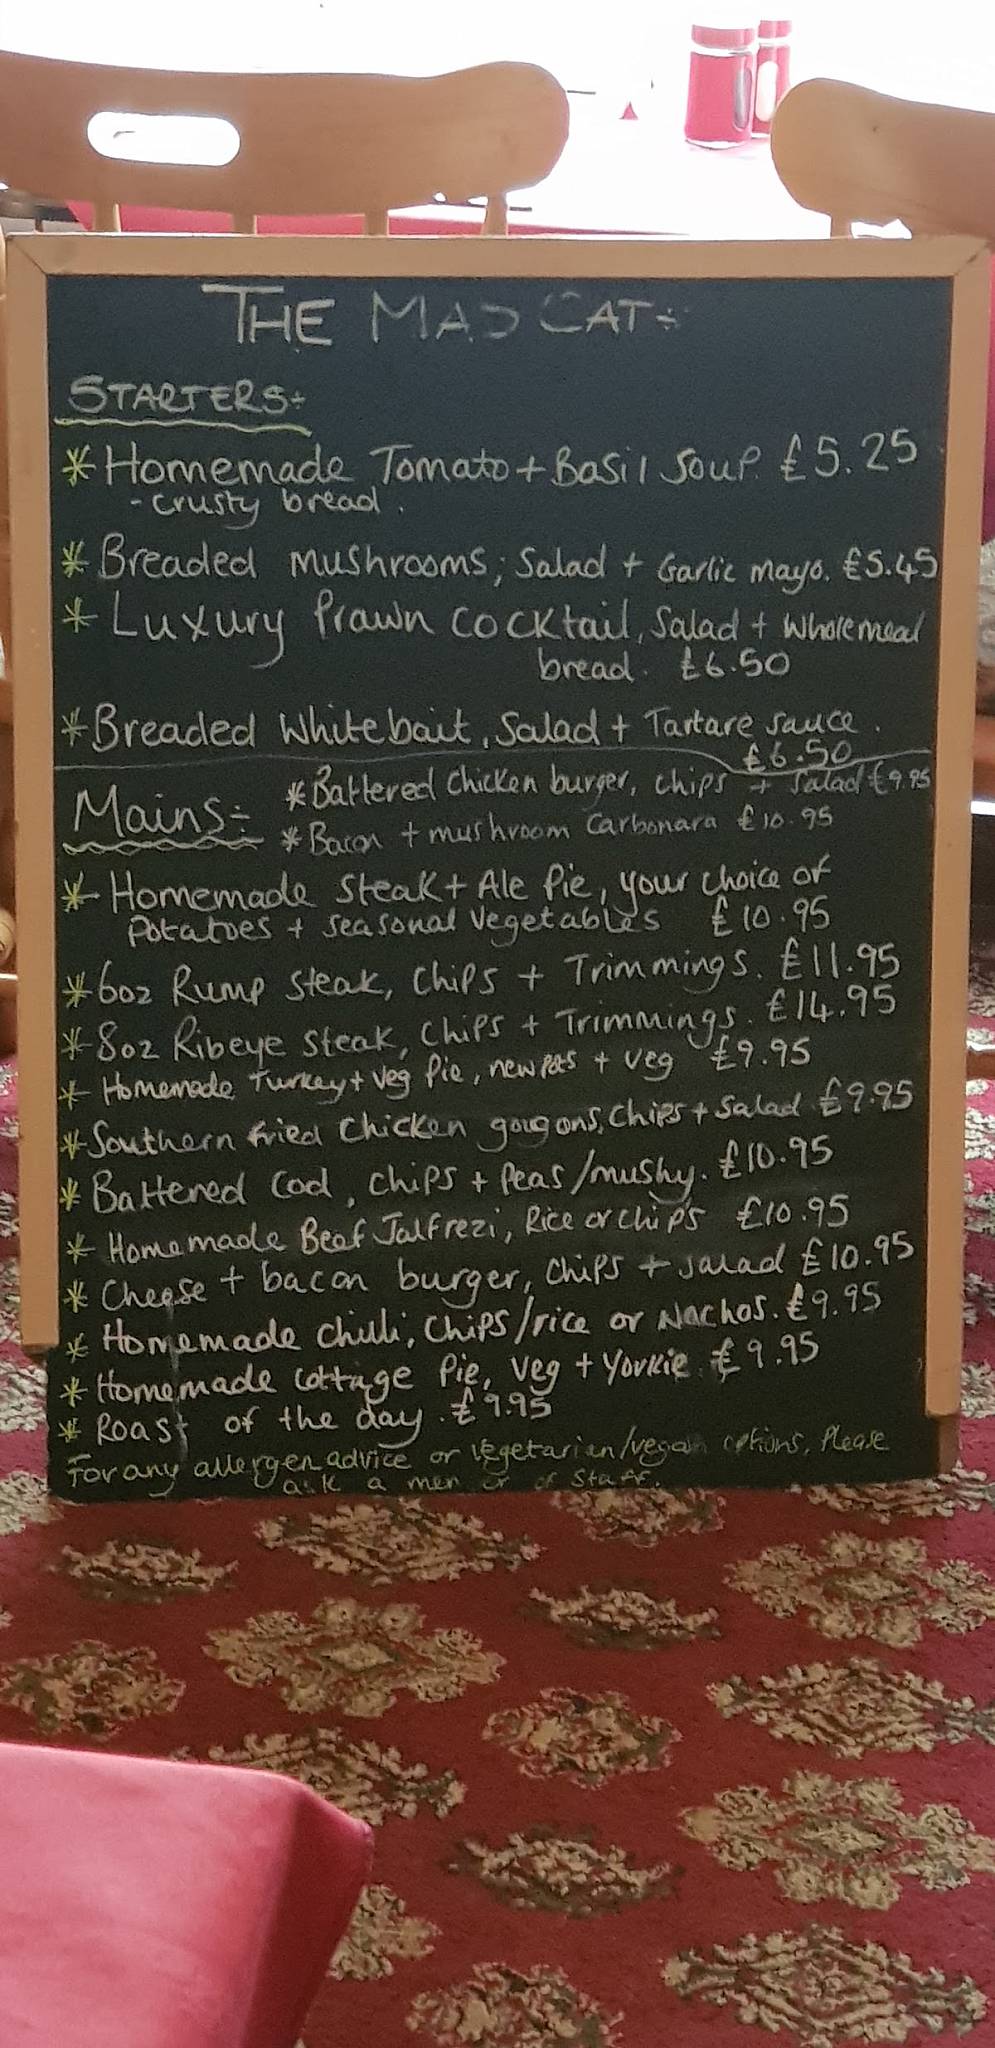 THE MAD CAT:-
STARTERS:-
* Homemade Tomato + Basil Soup. £5.25
- crusty bread.
* Breaded mushrooms; Salad + Garlic mayo. £5.45
* Luxury Prawn cocktail, Salad + Wholemeal
bread. £6.50
* Breaded Whitebait, Salad + Tartare sauce.
£6.50
Mains:-
* Battered Chicken burger, chips + salad £9.95
* Bacon + mushroom Carbonara £10.95
* Homemade Steak + Ale Pie, your choice of
Potatoes + seasonal vegetables £10.95
* 6oz Rump Steak, Chips + Trimmings. £11.95
* 8oz Ribeye Steak, Chips + Trimmings. £14.95
* Homemade Turkey + Veg Pie, new pots + veg £9.95
* Southern fried Chicken gougons, Chips + Salad £9.95
* Battered Cod, chips + Peas/mushy. £10.95
* Homemade Beef Jalfrezi, Rice or chips £10.95
* Cheese + bacon burger, chips + salad £10.95
* Homemade chilli, chips/rice or Nachos. £9.95
* Homemade Cottage Pie, Veg + Yorkie. £9.95
* Roast of the day. £9.95
For any allergen advice or vegetarian/vegan options, Please
ask a mem er of Staff.